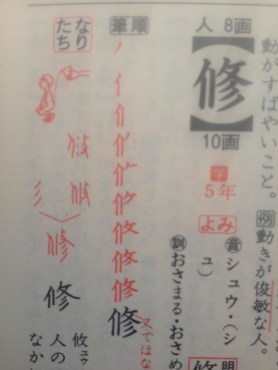 動がすばやいこと。
例動きが俊敏な人。
人 8画
【修】
10画
学
5年
よみ
音シュウ・(シュ)
訓おさまる・おさめ
筆順
修
又ではな
なりたち
攸
修
修
攸ユウ
人の
なか